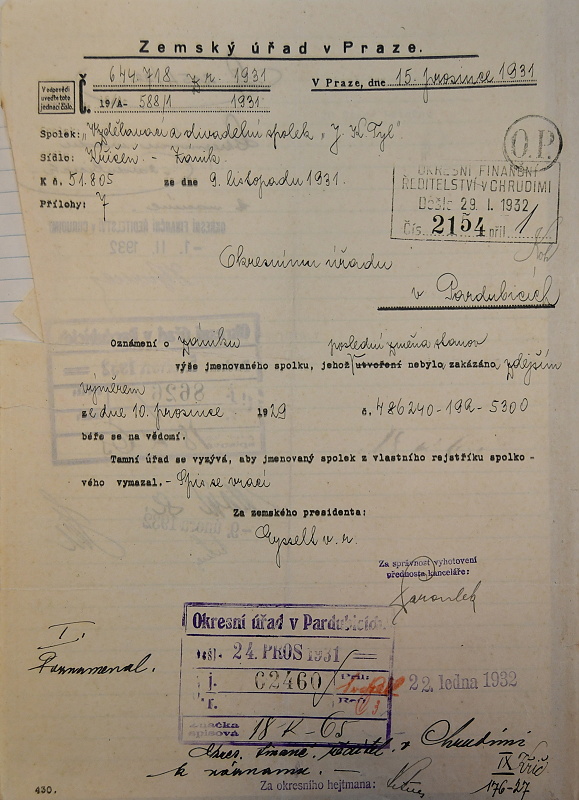 Zemský úřad v Praze.
V odpovědi uveďte toto jednací číslo.
Č. 644.718 z r. 1931
19/A- 588/1 1931.
V Praze, dne 15. prosince 1931
Spolek: „Vzdělávací a divadelní spolek „J. K. Tyl".
Sídlo: - Zánik.
K č. 51.805 ze dne 9. listopadu 1931.
Přílohy: 7
O.P.
OKRESNÍ FINANČNÍ
ŘEDITELSTVÍ v CHRUDIMI
Došlo 29. I. 1932
Čís. 2154 příl. 1
Okresnímu úřadu
v Pardubicích
Oznámení o zániku poslední změna stanov
výše jmenovaného spolku, jehož utvoření nebylo zakázáno zdejším
výměrem
ze dne 10. prosince 1929 č. 486240-19A-5300
béře se na vědomí.
Tamní úřad se vyzývá, aby jmenovaný spolek z vlastního rejstříku spolko-
vého vymazal.- Spis se vrací
Za zemského presidenta:
v. r.
Za správnost vyhotovení
přednosta kanceláře:
I.
Poznamenal.
Okresní úřad v Pardubicích
24. PROS 1931
j. 62460
Značka
spisová 18-K-65
22. ledna 1932
Okres. financ. ředitel. v Chrudimi
k záznamu.
IX
176-27
Za okresního hejtmana:
430.